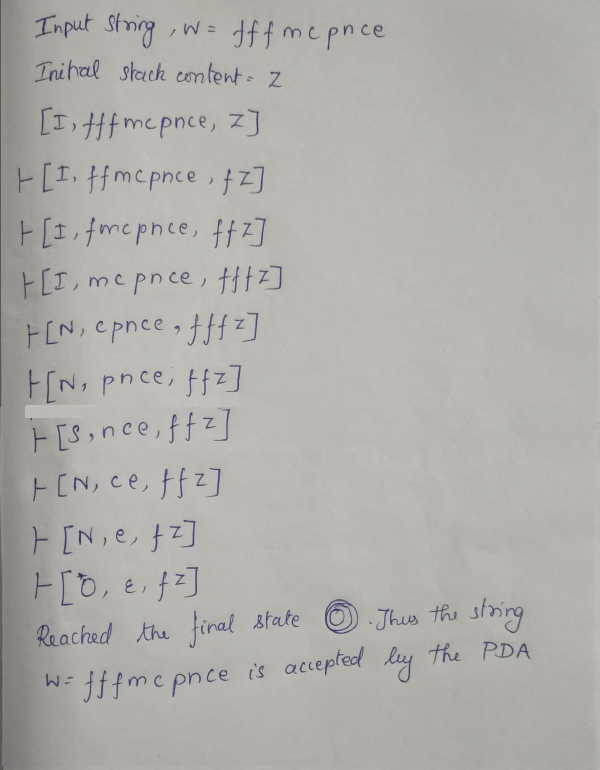 Input String, w = fffmcpnce
Initial stack content = Z
[I, fffmcpnce, Z]
⊢ [I, ffmcpnce, fZ]
⊢ [I, fmcpnce, ffZ]
⊢ [I, mcpnce, fffZ]
⊢ [N, cpnce, fffZ]
⊢ [N, pnce, ffZ]
⊢ [S, nce, ffZ]
⊢ [N, ce, ffZ]
⊢ [N, e, fZ]
⊢ [O, ε, fZ]
Reached the final state O. Thus the string
w = fffmcpnce is accepted by the PDA